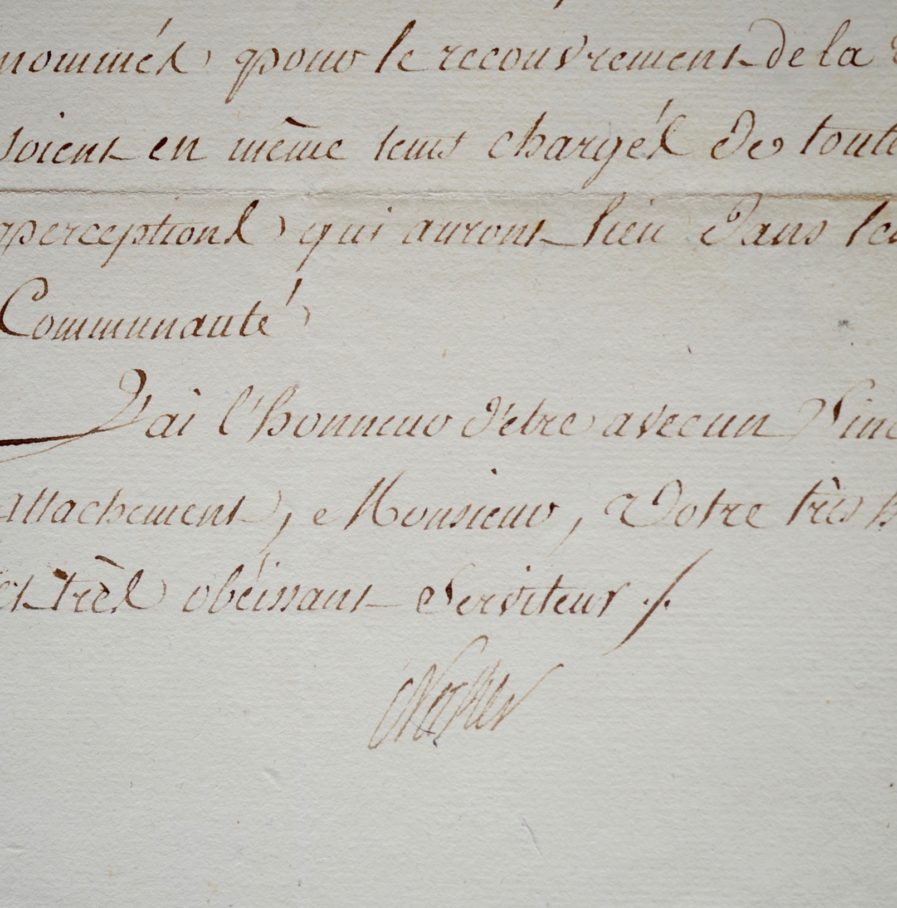 nommés pour le recouvrement de la
soient en même tems chargés de toute
perceptions qui auront lieu dans
Communauté
J'ai l'honneur d'etre avec un
attachement, Monsieur, Votre très
et très obéissant Serviteur ./.